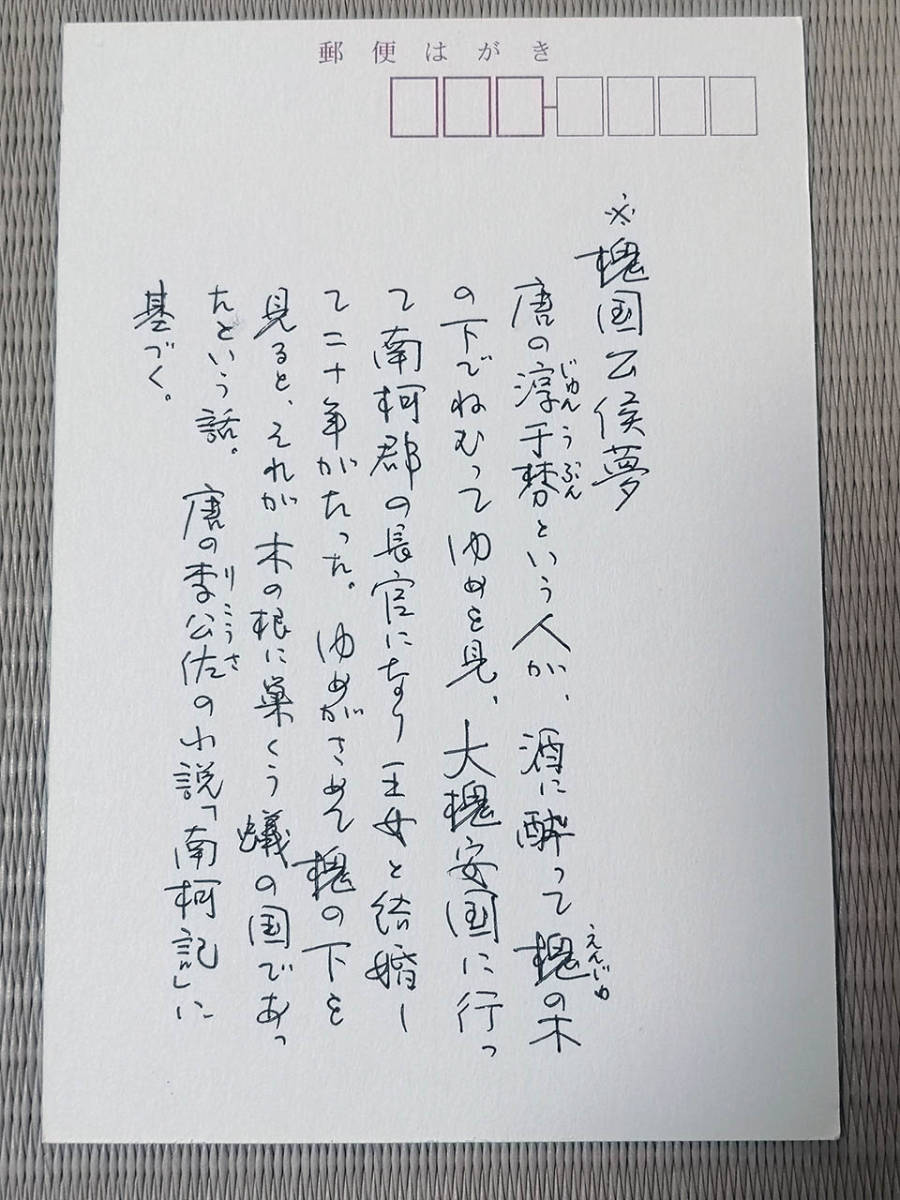 郵便はがき
※槐国公侯夢
唐の淳于棼という人が、酒に酔って槐の木
じゅんうふん
えんじゅ
の下でねむってゆめを見、大槐安国に行っ
て南柯郡の長官になり王女と結婚し
て二十年がたった。ゆめがさめて槐の下を
見ると、それが木の根に巣くう蟻の国であっ
たという話。唐の李公佐の小説「南柯記」に
りこうさ
基づく。